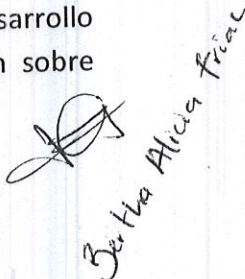 sarrollo
sobre
Bertha Alicia Frias